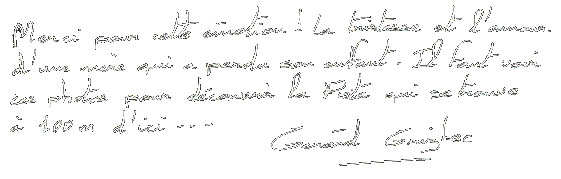 Merci pour cette émotion ! la tristesse et l'amour
d'une mère qui a perdu son enfant. Il faut voir
ces photos pour découvrir la Pietà qui se trouve
à 100 m d'ici ---